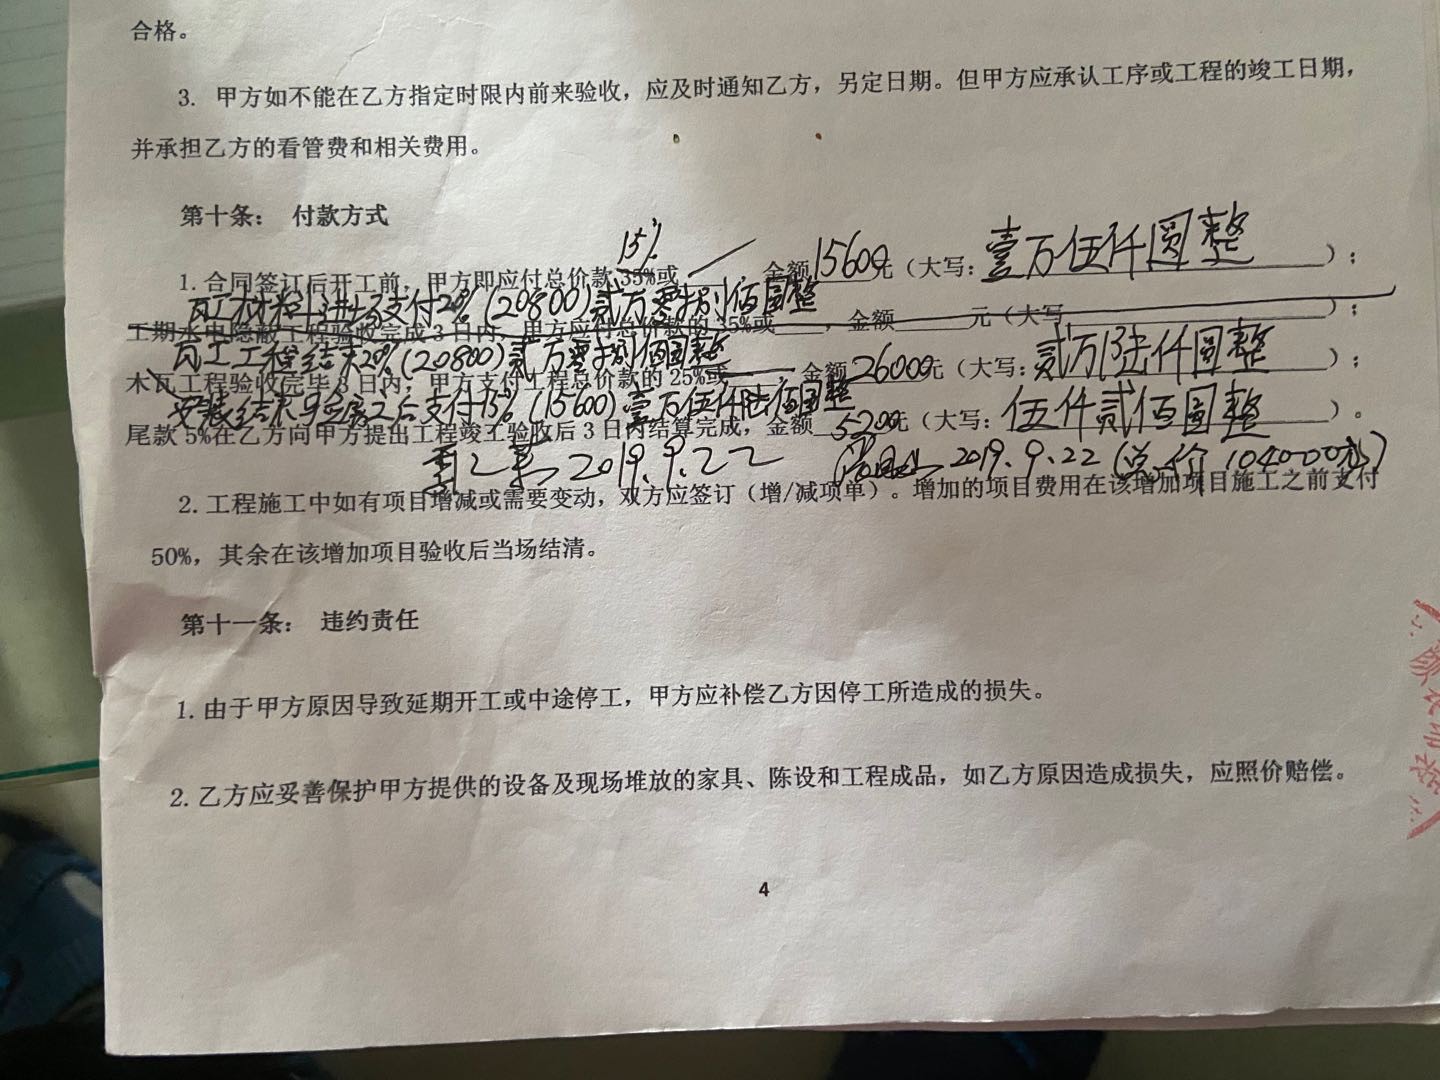 合格。
3. 甲方如不能在乙方指定时限内前来验收，应及时通知乙方，另定日期。但甲方应承认工序或工程的竣工日期，
并承担乙方的看管费和相关费用。
第十条： 付款方式
15%
1. 合同签订后开工前，甲方即应付总价款 35%或 ，金额15600元（大写：壹万伍仟圆整）；
瓦工材料进场支付20%(20800)贰万零捌佰圆整
工期水电隐蔽工程验收完成 3 日内，甲方应付总价款的 35%或 ，金额 元（大写 ）；
瓦工工程结束20%(20800)贰万零捌佰圆整
木瓦工程验收完毕 3 日内，甲方支付工程总价款的 25%或 金额26000元（大写：贰万陆仟圆整）；
安装结束 之后支付15%(15600)壹万伍仟陆佰圆整
尾款 5%在乙方向甲方提出工程竣工验收后 3 日内结算完成，金额 5200元（大写：伍仟贰佰圆整）。
2019.9.22 2019.9.22 (总价104000元)
2. 工程施工中如有项目增减或需要变动，双方应签订（增/减项单）。增加的项目费用在该增加项目施工之前支付
50%，其余在该增加项目验收后当场结清。
第十一条： 违约责任
1. 由于甲方原因导致延期开工或中途停工，甲方应补偿乙方因停工所造成的损失。
2. 乙方应妥善保护甲方提供的设备及现场堆放的家具、陈设和工程成品，如乙方原因造成损失，应照价赔偿。
4